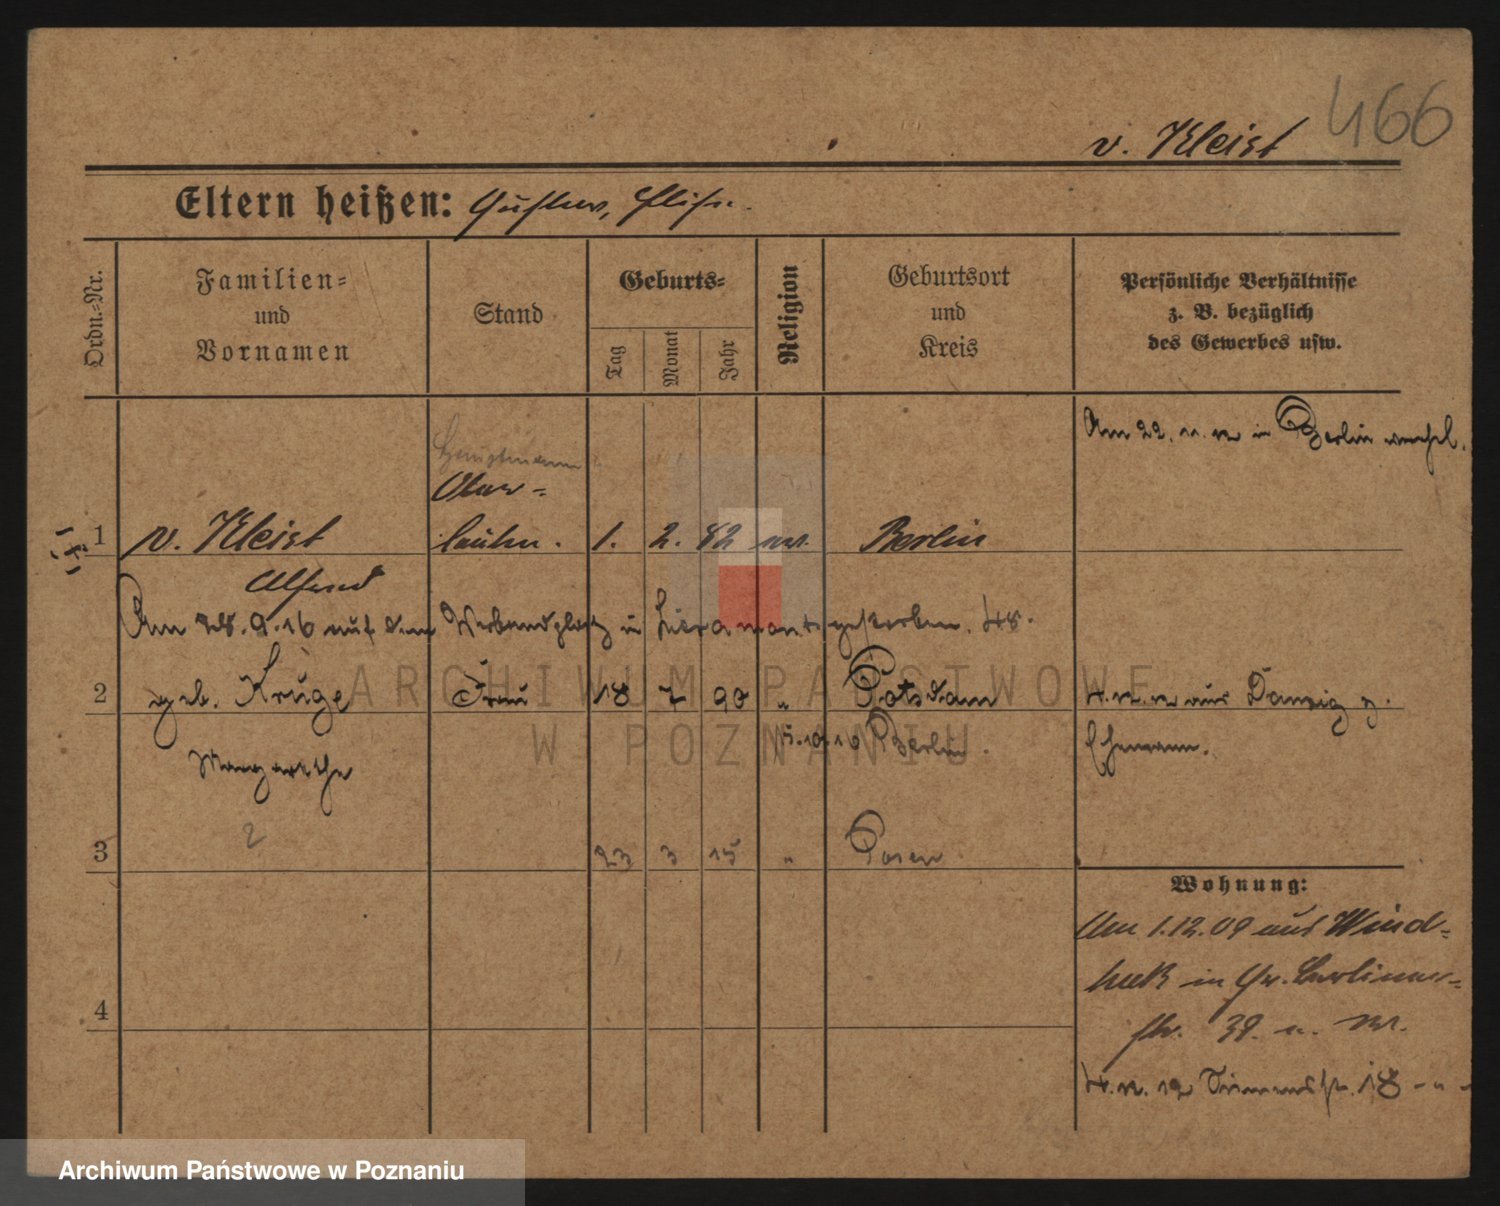 466
v. Kleist
Eltern heißen: Gustav, Elise.
Ordn.-Nr.
Familien-
und
Vornamen
Stand
Geburts-
Tag
Monat
Jahr
Religion
Geburtsort
und
Kreis
Persönliche Verhältnisse
z. B. bezüglich
des Gewerbes usw.
Am 22. 11. 12 in Berlin
Hauptmann
Ober-
1 v. Kleist leutn. 1. 2. 82 ev. Berlin
Alfred
Am 28. 9. 16 auf dem Verbandplatz in Lieramont gestorben.
2 geb. Kruge Frau 18 7 90 " Potsdam 4. 12. 12 aus Danzig z.
Margarethe 10. 16 Berlin. Ehemann.
2
3 23 3 15 " Posen
Wohnung:
Am 1.12.09 aus Wind-
huk in Gr. Berliner-
str. 39. b.
4
4. 12. 12 18 - " -
ARCHIWUM PAŃSTWOWE
W POZNANIU
Archiwum Państwowe w Poznaniu